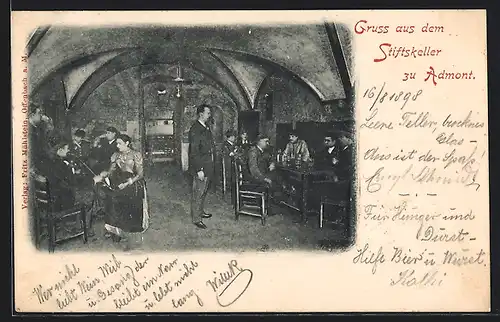 Verlag: Fritz Mühlstein, Offenbach a. M.
Gruss aus dem
Stiftskeller
zu Admont.
16/8 1898
Leere Teller trocknes
Glas -
Dies ist der Spaß!
Für Hunger und
Durst -
Hilfe Bier u. Wurst.
Kathi
Wer nicht
liebt Wein, Weib
u. Gesang, der
bleibt ein Narr
u. lebt nicht
lang.